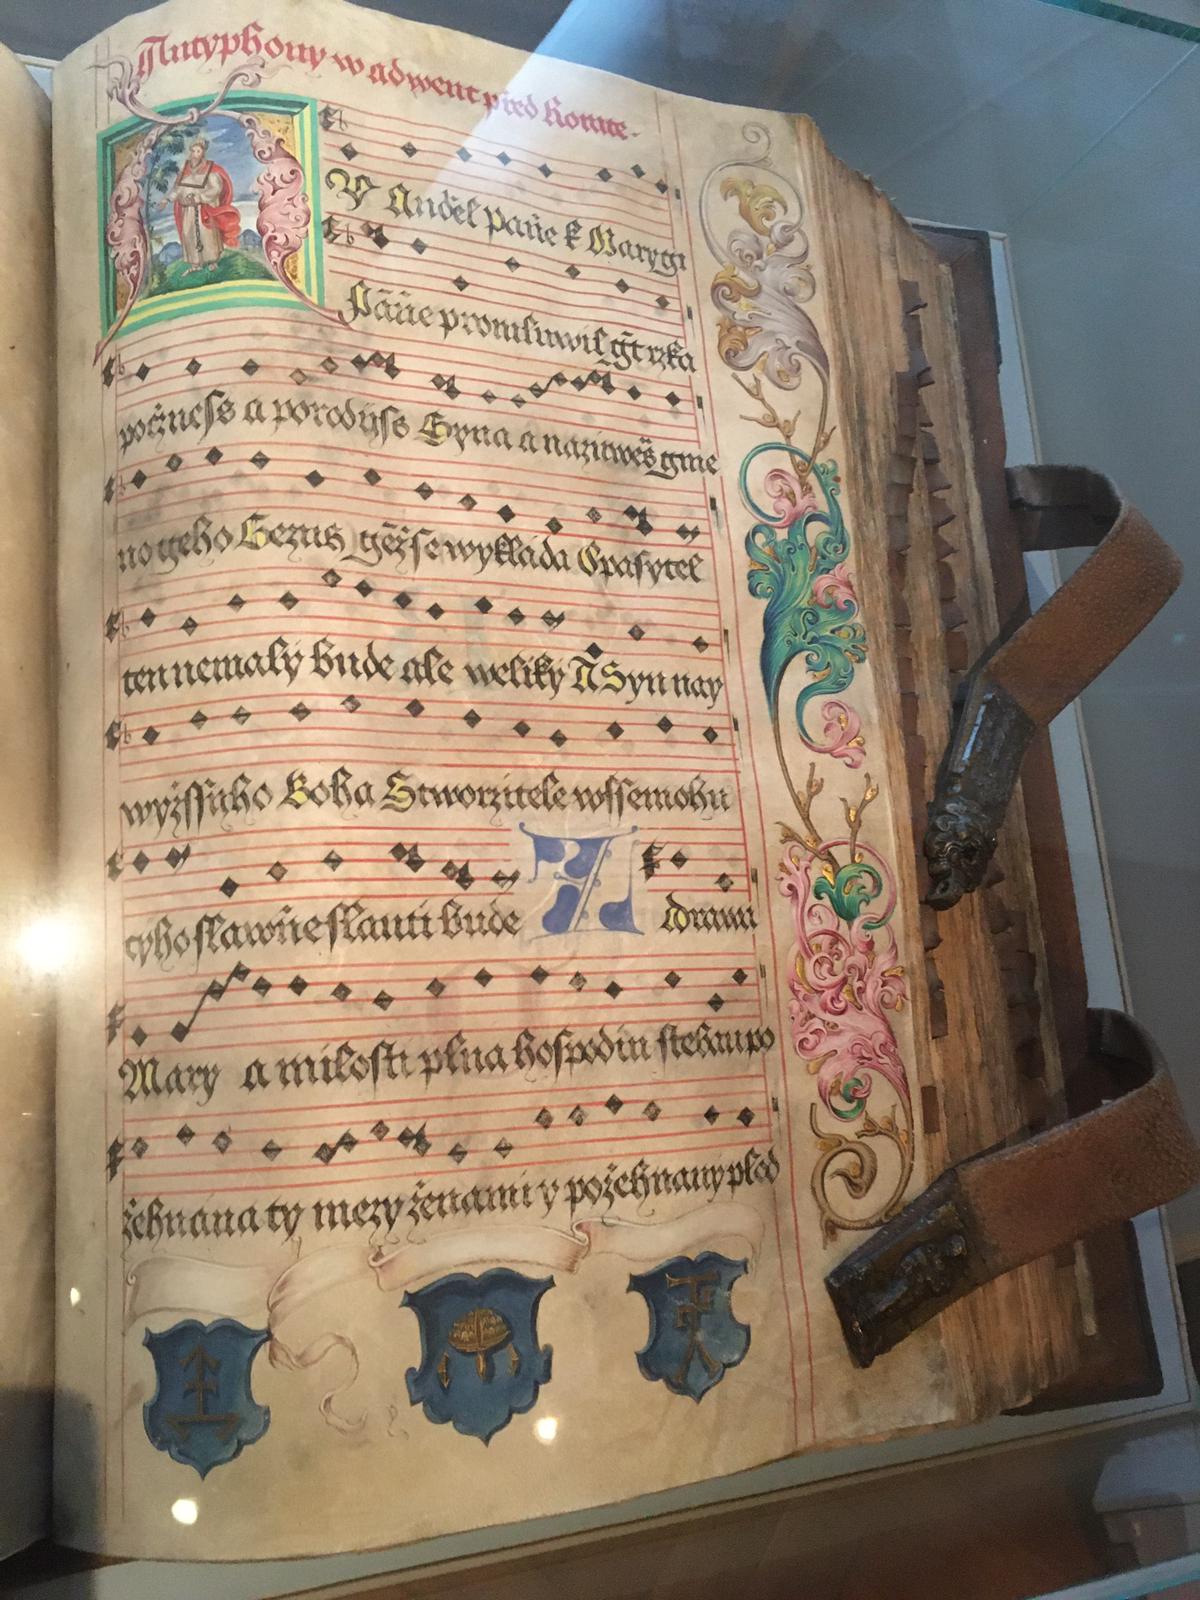 Antyphony w adwent před Rorate.
Y Anděl Páně k Marygi
Páně promluwil gt rzka
počzness a porodijss Syna a nazuweš gme
no geho Gezus gežse wykláda Spasytel
ten nemalý bude ale weliký A Syn nay
wyžssyho Boha Stworzitele wssemohu
cyho slawně slauti bude Zdrawa
Mary a milosti plna hospodin stebau po
žehnana ty mezy ženami y požehnaný plod